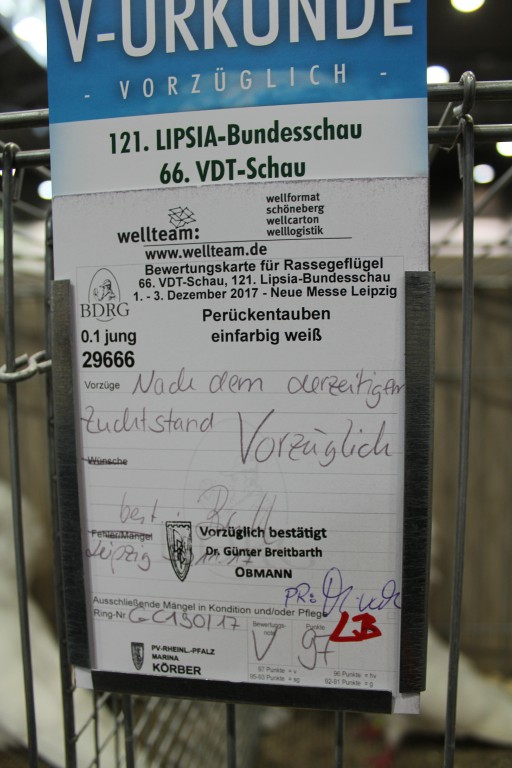 V-URKUNDE
- VORZÜGLICH -
121. LIPSIA-Bundesschau
66. VDT-Schau
wellteam:
wellformat
schöneberg
wellcarton
welllogistik
www.wellteam.de
BDRG
Bewertungskarte für Rassegeflügel
66. VDT-Schau, 121. Lipsia-Bundesschau
1. - 3. Dezember 2017 - Neue Messe Leipzig
0.1 jung
29666
Perückentauben
einfarbig weiß
Vorzüge Nach dem derzeitigen
Zuchtstand Vorzüglich
Wünsche
best.
Fehler/Mängel
Leipzig
Vorzüglich bestätigt
Dr. Günter Breitbarth
OBMANN
Ausschließende Mängel in Kondition und/oder Pflege
PR:
LB
Ring-Nr. GC190/17
Bewertungs-
note
V
Punkte
97
97 Punkte = v
96 Punkte = hv
PV-RHEINL.-PFALZ
MARINA
KÖRBER